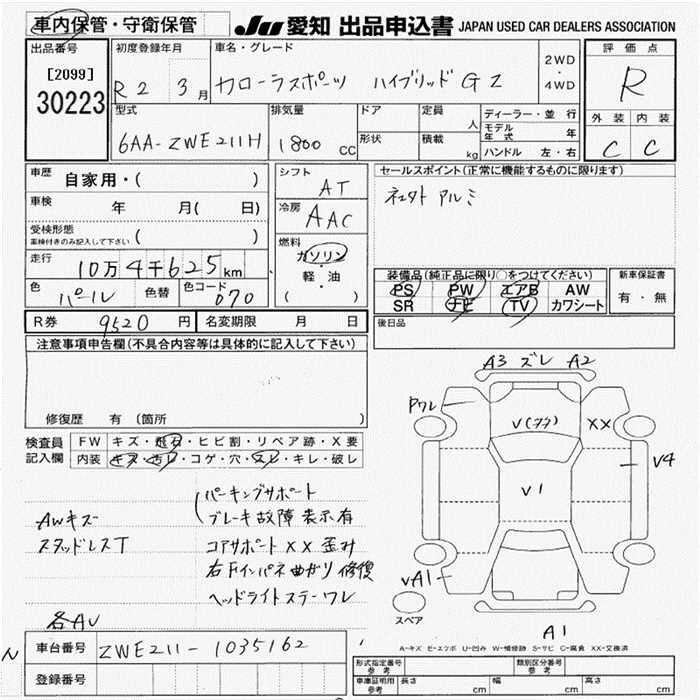 車内保管・守衛保管
JU 愛知 出品申込書 JAPAN USED CAR DEALERS ASSOCIATION
出品番号
[2099]
30223
初度登録年月
R2 3月
車名・グレード
カローラスポーツ ハイブリッドGZ
2WD
・
4WD
評価点
R
外装 内装
C C
型式
6AA-ZWE211H
排気量
1800 CC
ドア
形状
定員 人
積載 kg
ディーラー・並行
モデル年式 年
ハンドル 左・右
車歴 自家用・( )
車検 年 月(日)
受検形態
車検付きのみ記入して下さい ( )
走行 10万4千625km
色 パール 色替 色コード 070
シフト AT
冷房 AAC
燃料
ガソリン
軽・油
( )
セールスポイント(正常に機能するものに限ります)
ネエクト アルミ
装備品(純正品に限り○をつけてください)
PS PW エアB AW
SR ナビ TV カワシート
新車保証書
有・無
後日品
R券 9520円 名変期限 月 日
注意事項申告欄(不具合内容等は具体的に記入して下さい)
修復歴 有 (箇所 )
検査員
記入欄
FW キズ・飛石・ヒビ割・リペア跡・X要
内装 キズ・汚レ・コゲ・穴・スレ・キレ・破レ
パーキングサポート
AWキズ ブレーキ故障表示有
スタッドレスT コアサポートXX歪み
右Fインパネ曲がり修復
ヘッドライトステーワレ
各AU
A3 ズレ A2
Pワレ
XX
V1
V4
VA1
スペア
A1
A-キズ E-エクボ U-凹み W-補修跡 S-サビ C-腐食 XX-交換済
車台番号 ZWE211-1035162
登録番号
形式指定番号
参考
類別区分番号
参考
車庫証明用
参考
長さ cm 幅 cm 高さ cm